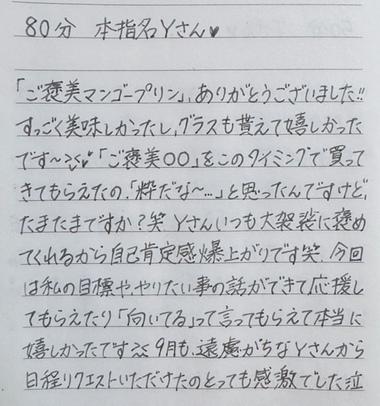 80分 本指名Yさん♥
「ご褒美マンゴープリン」、ありがとうございました!!
すっごく美味しかったし、グラスも貰えて嬉しかった
です〜>⩊<♥「ご褒美○○」をこのタイミングで買って
きてもらえたの、「粋だな〜…」と思ったんですけど、
たまたまですか?笑 Yさんいつも大袈裟に褒め
てくれるから自己肯定感爆上がりです笑 今回
は私の目標や、やりたい事の話ができて応援し
てもらえたり「向いてる」って言ってもらえて本当に
嬉しかったです 9月も、遠慮がちなYさんから
日程リクエストいただけたのとっても感激でした泣